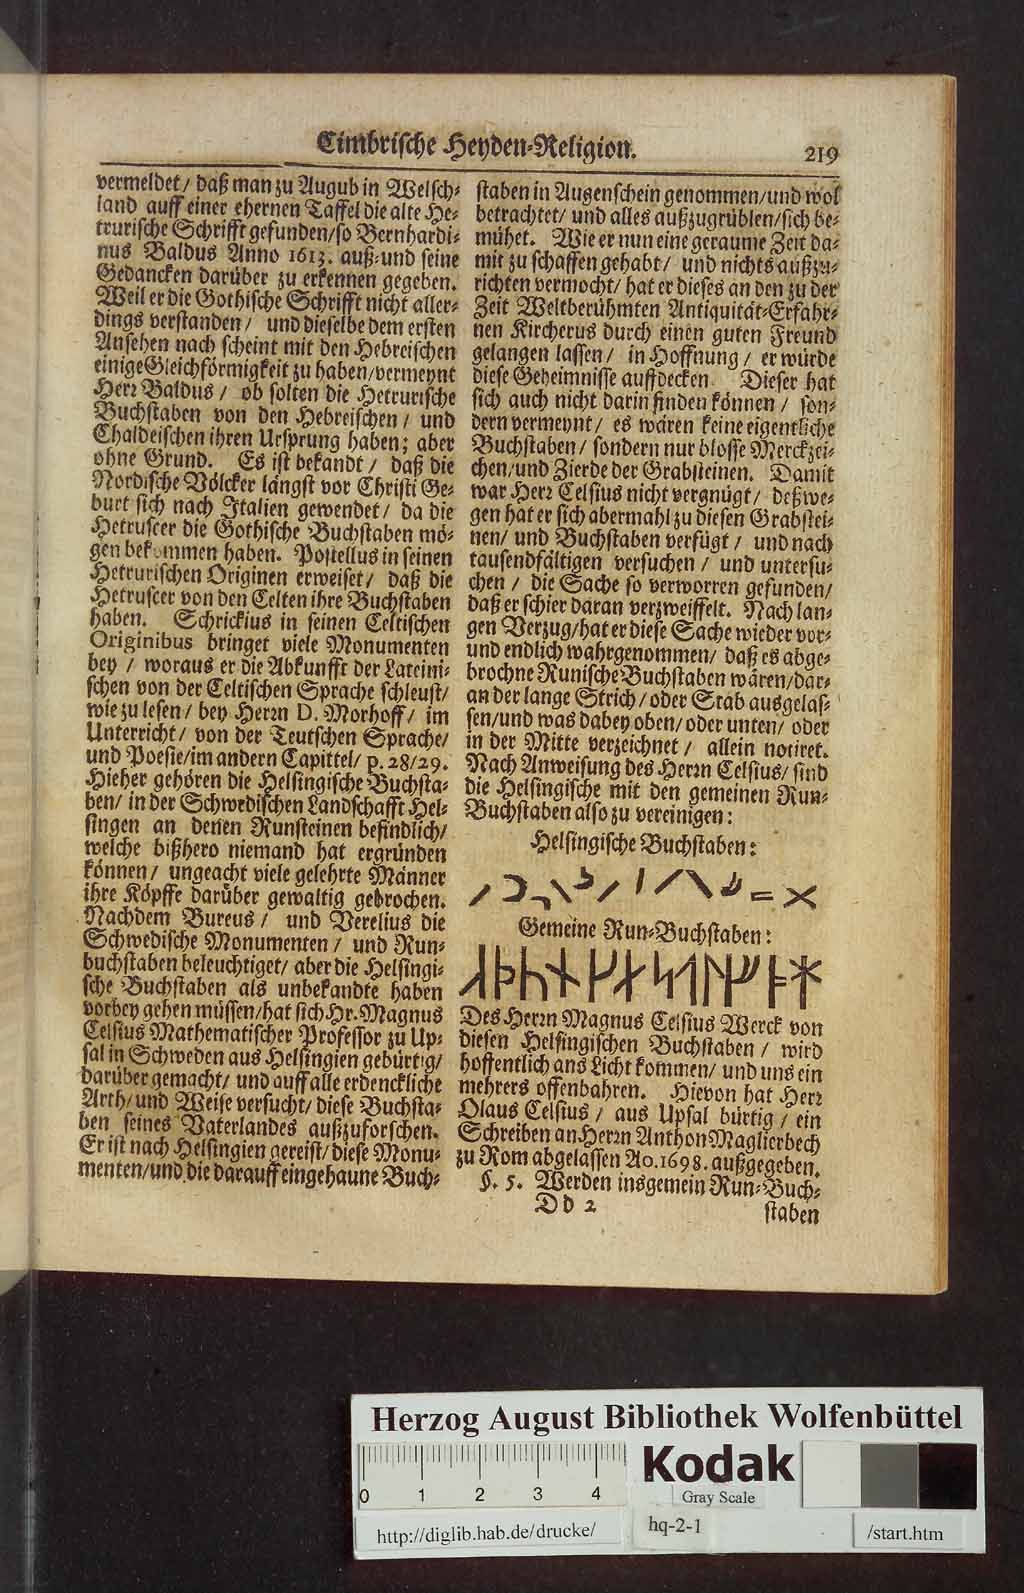 Cimbrische Heyden-Religion.
219
vermeldet / daß man zu Augub in Welsch-
land auff einer ehernen Taffel die alte He-
trurische Schrifft gefunden / so Bernhardi-
nus Baldus Anno 1613. auß- und seine
Gedancken darüber zu erkennen gegeben.
Weil er die Gothische Schrifft nicht aller-
dings verstanden / und dieselbe dem ersten
Ansehen nach scheint mit den Hebreischen
einige Gleichförmigkeit zu haben / vermeynt
Herr Baldus / ob solten die Hetrurische
Buchstaben von den Hebreischen / und
Chaldeischen ihren Ursprung haben; aber
ohne Grund. Es ist bekandt / daß die
Nordische Völcker längst vor Christi Ge-
burt sich nach Italien gewendet / da die
Hetruscer die Gothische Buchstaben mö-
gen bekommen haben. Postellus in seinen
Hetrurischen Originen erweiset / daß die
Hetruscer von den Celten ihre Buchstaben
haben. Schrickius in seinen Celtischen
Originibus bringet viele Monumenten
bey / woraus er die Abkunfft der Lateini-
schen von der Celtischen Sprache schleust /
wie zu lesen / bey Herrn D. Morhoff / im
Unterricht / von der Teutschen Sprache /
und Poesie / im andern Capittel / p. 28 / 29.
Hieher gehören die Helsingische Buchsta-
ben / in der Schwedischen Landschafft Hel-
singen an denen Runsteinen befindlich /
welche bißhero niemand hat ergründen
können / ungeacht viele gelehrte Männer
ihre Köpffe darüber gewaltig gebrochen.
Nachdem Bureus / und Verelius die
Schwedische Monumenten / und Run-
buchstaben beleuchtiget / aber die Helsingi-
sche Buchstaben als unbekandte haben
vorbey gehen müssen / hat sich Hr. Magnus
Celsius Mathematischer Professor zu Up-
sal in Schweden aus Helsingien gebürtig /
darüber gemacht / und auff alle erdenckliche
Arth / und Weise versucht / diese Buchsta-
ben seines Vaterlandes außzuforschen.
Er ist nach Helsingien gereist / diese Monu-
menten / und die darauff eingehaune Buch-
staben in Augenschein genommen / und wol
betrachtet / und alles außzugrüblen / sich be-
mühet. Wie er nun eine geraume Zeit da-
mit zu schaffen gehabt / und nichts außzu-
richten vermocht / hat er dieses an den zu der
Zeit Weltberühmten Antiquität-Erfahr-
nen Kircherus durch einen guten Freund
gelangen lassen / in Hoffnung / er würde
diese Geheimnisse auffdecken. Dieser hat
sich auch nicht darin finden können / son-
dern vermeynt / es wären keine eigentliche
Buchstaben / sondern nur blosse Merckzei-
chen / und Zierde der Grabsteinen. Damit
war Herr Celsius nicht vergnügt / deßwe-
gen hat er sich abermahl zu diesen Grabstei-
nen / und Buchstaben verfügt / und nach
tausendfältigen versuchen / und untersu-
chen / die Sache so verworren gefunden /
daß er schier daran verzweiffelt. Nach lan-
gen Verzug / hat er diese Sache wieder vor-
und endlich wahrgenommen / daß es abge-
brochne Runische Buchstaben wären / dar-
an der lange Strich / oder Stab ausgelas-
sen / und was dabey oben / oder unten / oder
in der Mitte verzeichnet / allein notiret.
Nach Anweisung des Herrn Celsius / sind
die Helsingische mit den gemeinen Run-
Buchstaben also zu vereinigen:
Helsingische Buchstaben:
Gemeine Run-Buchstaben:
Des Herrn Magnus Celsius Werck von
diesen Helsingischen Buchstaben / wird
hoffentlich ans Licht kommen / und uns ein
mehrers offenbahren. Hievon hat Herr
Olaus Celsius / aus Upsal bürtig / ein
Schreiben an Herrn Anthon Maglierbech
zu Rom abgelassen Ao. 1698. außgegeben.
§. 5. Werden insgemein Run-Buch-
Dd 2
staben
Herzog August Bibliothek Wolfenbüttel
0 1 2 3 4
Kodak
Gray Scale
http://diglib.hab.de/drucke/
hq-2-1
/start.htm